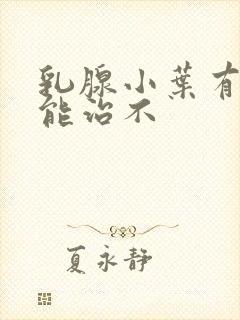 乳腺小葉有
能治不
夏永靜